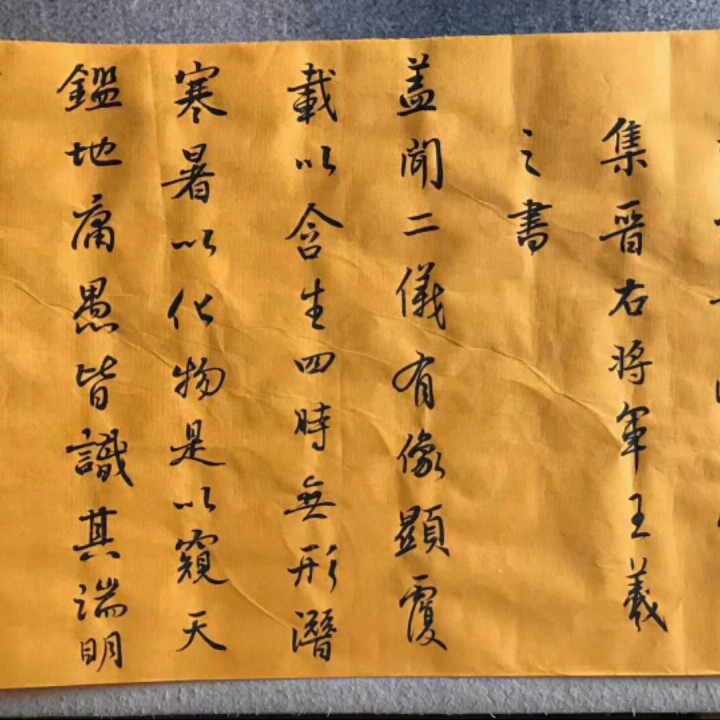 集晋右将軍王羲
之書
盖聞二儀有像顯覆
載以含生四時無形潛
寒暑以化物是以窺天
鑑地庸愚皆識其端明